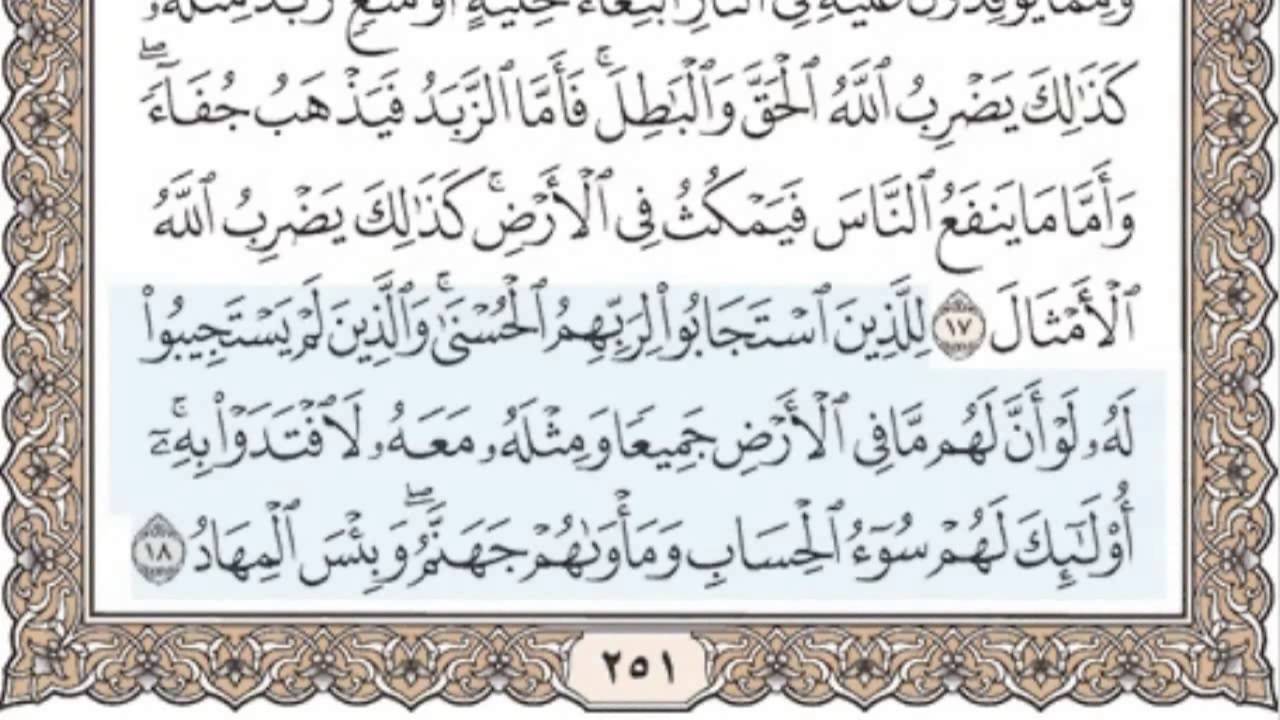 وَمِمَّا يُوقِدُونَ عَلَيْهِ فِى ٱلنَّارِ ٱبْتِغَآءَ حِلْيَةٍ أَوْ مَتَٰعٍ زَبَدٌ مِّثْلُهُۥ
كَذَٰلِكَ يَضْرِبُ ٱللَّهُ ٱلْحَقَّ وَٱلْبَٰطِلَ ۚ فَأَمَّا ٱلزَّبَدُ فَيَذْهَبُ جُفَآءً ۖ
وَأَمَّا مَا يَنفَعُ ٱلنَّاسَ فَيَمْكُثُ فِى ٱلْأَرْضِ ۚ كَذَٰلِكَ يَضْرِبُ ٱللَّهُ
ٱلْأَمْثَالَ ١٧ لِلَّذِينَ ٱسْتَجَابُوا۟ لِرَبِّهِمُ ٱلْحُسْنَىٰ ۚ وَٱلَّذِينَ لَمْ يَسْتَجِيبُوا۟
لَهُۥ لَوْ أَنَّ لَهُم مَّا فِى ٱلْأَرْضِ جَمِيعًا وَمِثْلَهُۥ مَعَهُۥ لَٱفْتَدَوْا۟ بِهِۦٓ ۚ
أُو۟لَٰٓئِكَ لَهُمْ سُوٓءُ ٱلْحِسَابِ وَمَأْوَىٰهُمْ جَهَنَّمُ ۖ وَبِئْسَ ٱلْمِهَادُ ١٨
٢٥١